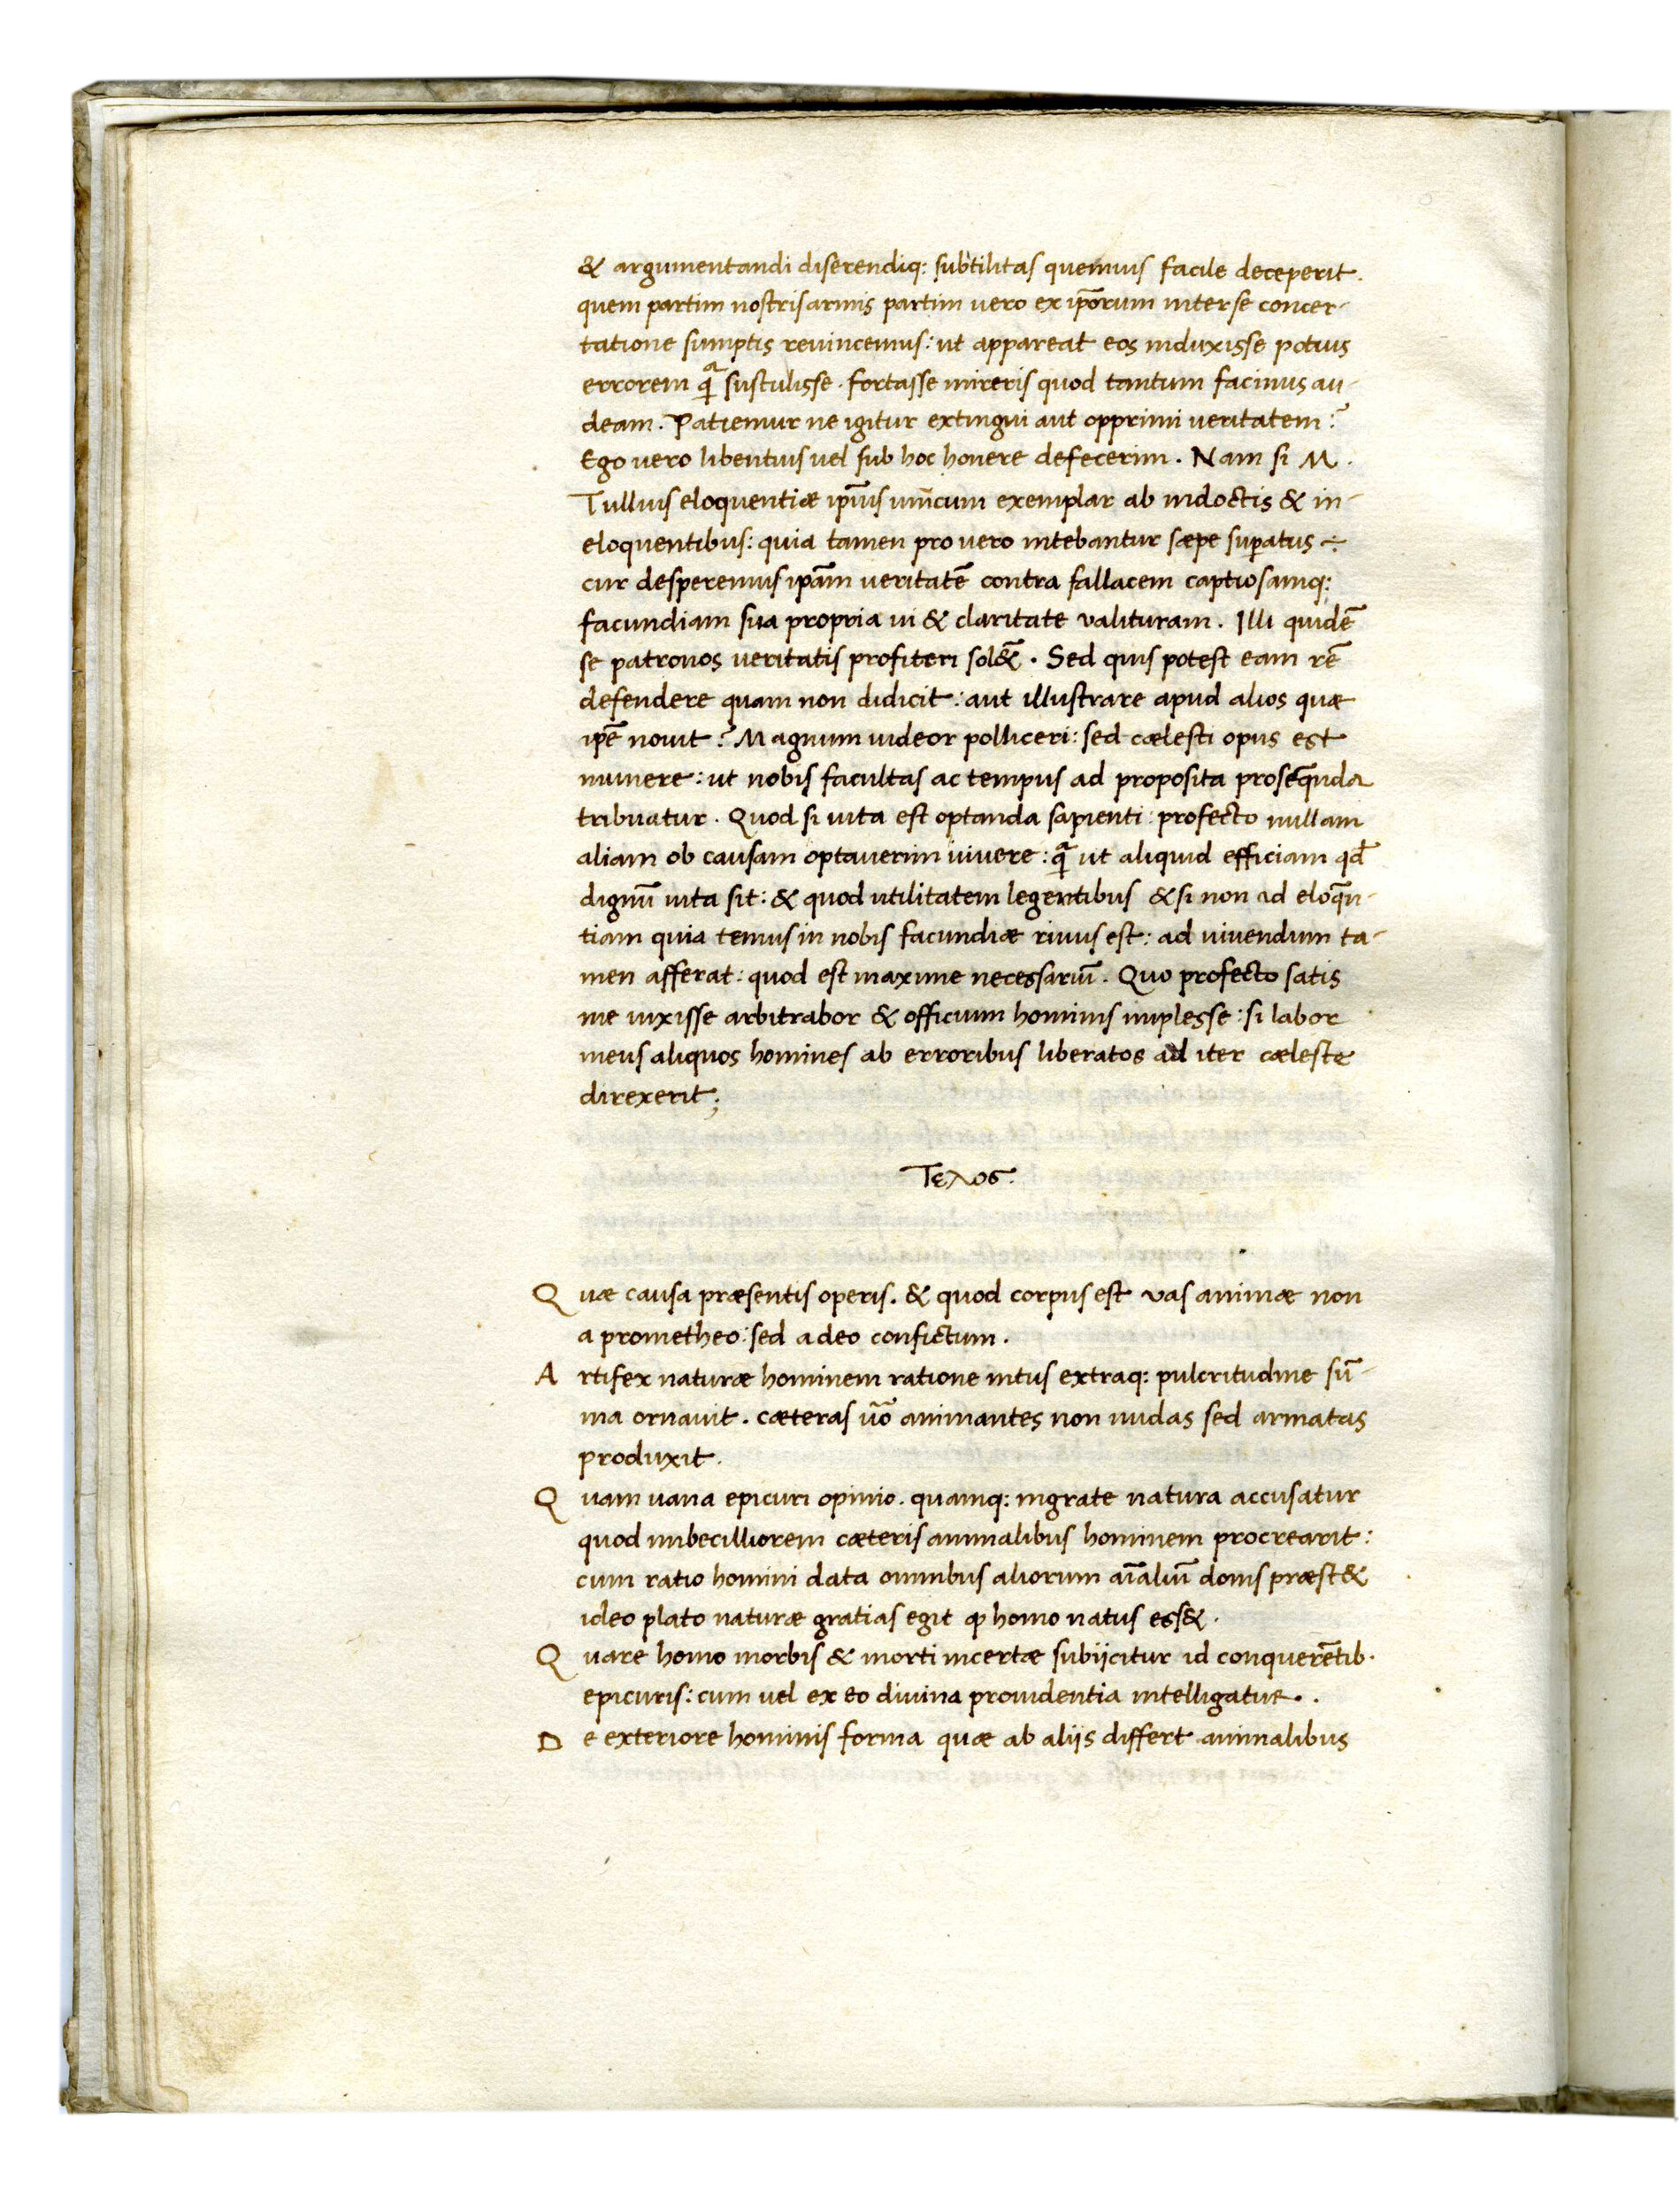 & argumentandi diserendiq: subtilitas quemuis facile deceperit.
quem partim nostris armis partim uero ex ip̄orum inter se concer-
tatione sumptis reuincemus: ut appareat eos induxisse potius
errorem qᷓ sustulisse. fortasse mireris quod tantum facinus au-
deam. Patiemur ne igitur extingui aut opprimi ueritatem?
Ego uero libentius uel sub hoc honere defecerim. Nam si M.
Tullius eloquentiæ ip̄ius unicum exemplar ab indoctis & in-
eloquentibus: quia tamen pro uero nitebantur sæpe suꝑatus ÷
cur desperemus ip̄am ueritatē contra fallacem captiosamq:
facundiam sua propria ui & claritate valituram. Illi quidē
se patronos ueritatis profiteri sol&̄. Sed quis potest eam rē
defendere quam non didicit: aut illustrare apud alios quæ
ip̄e nouit? Magnum uideor polliceri: sed cælesti opus est
munere: ut nobis facultas ac tempus ad proposita proseq̄nda
tribuatur. Quod si uita est optanda sapienti: profecto nullam
aliam ob causam optauerim uiuere: qᷓ ut aliquid efficiam qd̄
dignū uita sit: & quod utilitatem legentibus &si non ad eloq̄n-
tiam quia tenuis in nobis facundiæ riuus est: ad uiuendum ta-
men afferat: quod est maxime necessariū. Quo profecto satis
me uixisse arbitrabor & officium hominis implesse: si labor
meus aliquos homines ab erroribus liberatos ad iter cæleste
direxerit;
Τελος.
Quæ causa præsentis operis. & quod corpus est vas animæ non
a prometheo: sed a deo confictum.
Artifex naturæ hominem ratione intus extraq: pulcritudine sū-
ma ornauit. cæteras uō animantes non nudas sed armatas
produxit.
Quam uana epicuri opinio. quamq: ingrate natura accusatur
quod imbecilliorem cæteris animalibus hominem procrearit:
cum ratio homini data omnibus aliorum aīaliū donis præst&
ideo plato naturæ gratias egit ꝙ homo natus ess&.
Quare homo morbis & morti incertæ subijcitur id conquerētib.
epicuris: cum uel ex eo diuina prouidentia intelligatur..
De exteriore hominis forma quæ ab aliis differt animalibus